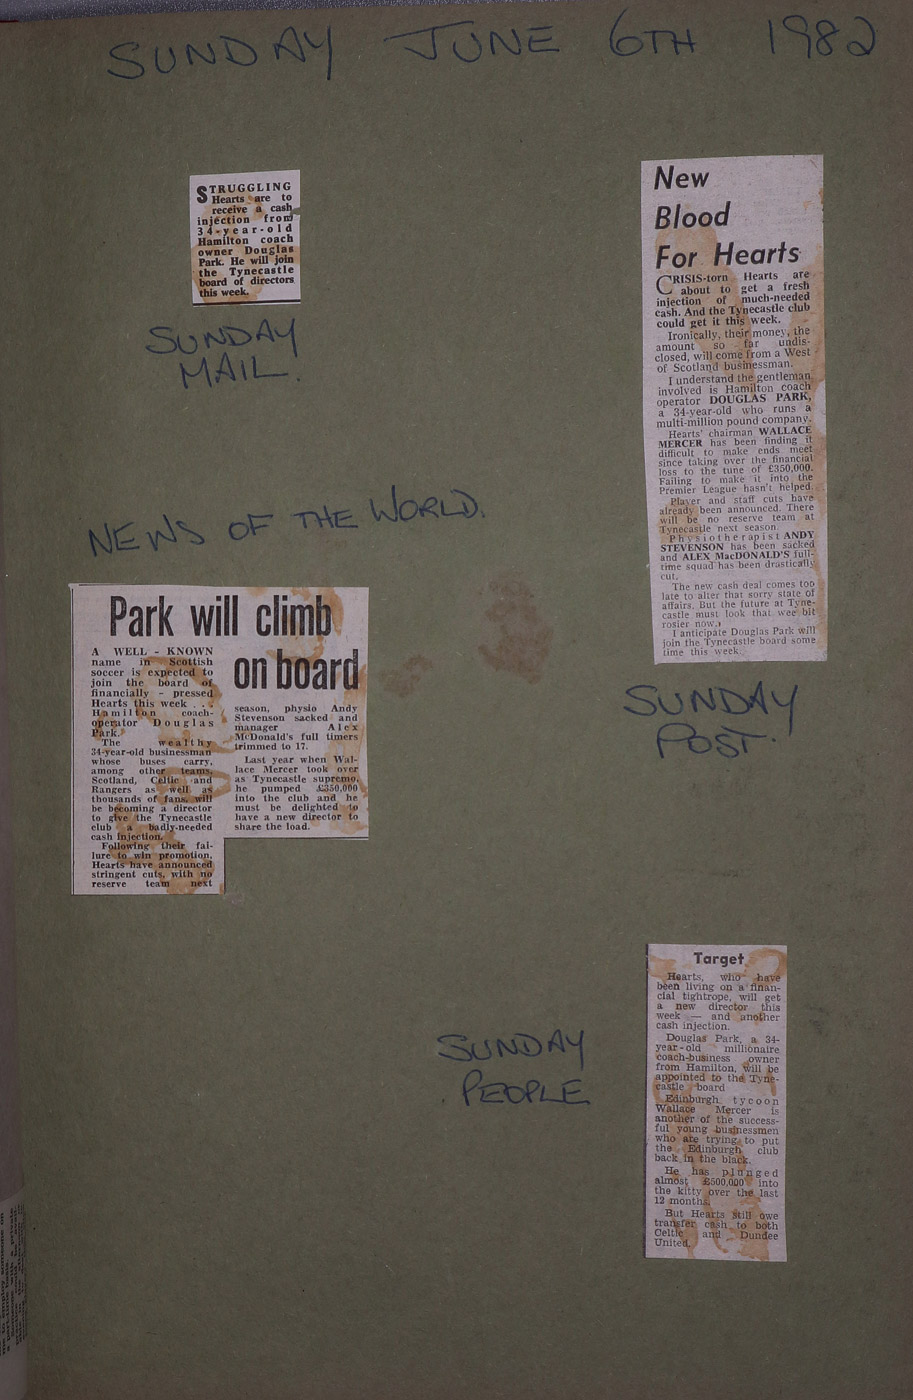 SUNDAY JUNE 6TH 1982
STRUGGLING
Hearts are to
receive a cash
injection from
34-year-old
Hamilton coach
owner Douglas
Park. He will join
the Tynecastle
board of directors
this week.
SUNDAY
MAIL.
New
Blood
For Hearts
CRISIS-torn Hearts are
about to get a fresh
injection of much-needed
cash. And the Tynecastle club
could get it this week.
Ironically, their money, the
amount so far undis-
closed, will come from a West
of Scotland businessman.
I understand the gentleman
involved is Hamilton coach
operator DOUGLAS PARK,
a 34-year-old who runs a
multi-million pound company.
Hearts' chairman WALLACE
MERCER has been finding it
difficult to make ends meet
since taking over the financial
loss to the tune of £350,000.
Failing to make it into the
Premier League hasn't helped.
Player and staff cuts have
already been announced. There
will be no reserve team at
Tynecastle next season.
Physiotherapist ANDY
STEVENSON has been sacked
and ALEX MacDONALD'S full-
time squad has been drastically
cut.
The new cash deal comes too
late to alter that sorry state of
affairs. But the future at Tyne-
castle must look that wee bit
rosier now.
I anticipate Douglas Park will
join the Tynecastle board some
time this week.
SUNDAY
POST.
NEWS OF THE WORLD.
Park will climb
on board
A WELL - KNOWN
name in Scottish
soccer is expected to
join the board of
financially - pressed
Hearts this week . . .
Hamilton coach-
operator Douglas
Park.
The wealthy
34-year-old businessman
whose buses carry,
among other teams,
Scotland, Celtic and
Rangers as well as
thousands of fans, will
be becoming a director
to give the Tynecastle
club a badly-needed
cash injection.
Following their fai-
lure to win promotion,
Hearts have announced
stringent cuts, with no
reserve team next
season, physio Andy
Stevenson sacked and
manager Alex
McDonald's full timers
trimmed to 17.
Last year when Wal-
lace Mercer took over
as Tynecastle supremo,
he pumped £350,000
into the club and he
must be delighted to
have a new director to
share the load.
SUNDAY
PEOPLE
Target
Hearts, who have
been living on a finan-
cial tightrope, will get
a new director this
week — and another
cash injection.
Douglas Park, a 34-
year-old millionaire
coach-business owner
from Hamilton, will be
appointed to the Tyne-
castle board
Edinburgh tycoon
Wallace Mercer is
another of the success-
ful young businessmen
who are trying to put
the Edinburgh club
back in the black.
He has plunged
almost £500,000 into
the kitty over the last
12 months.
But Hearts still owe
transfer cash to both
Celtic and Dundee
United.